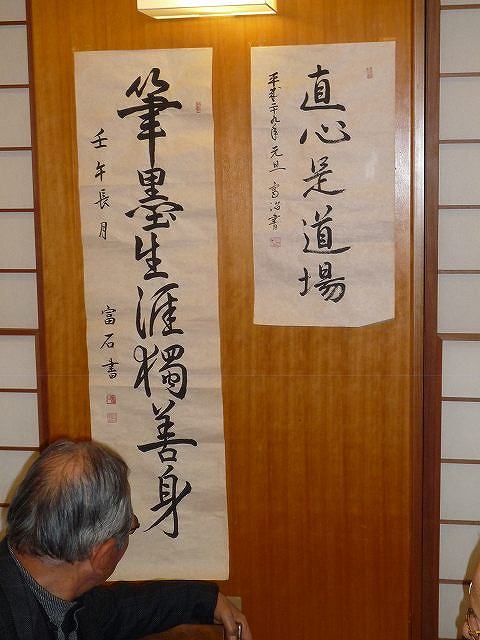 直心是道場
平成二十九年 元旦 富治書
筆墨生涯獨善身
壬午長月
富石書